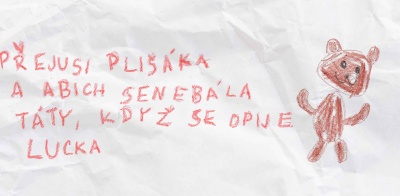 PŘEJUSI PLIŠÁKA
A ABICH SENEBÁLA
TÁTY, KDYŽ SE OPIJE
LUCKA